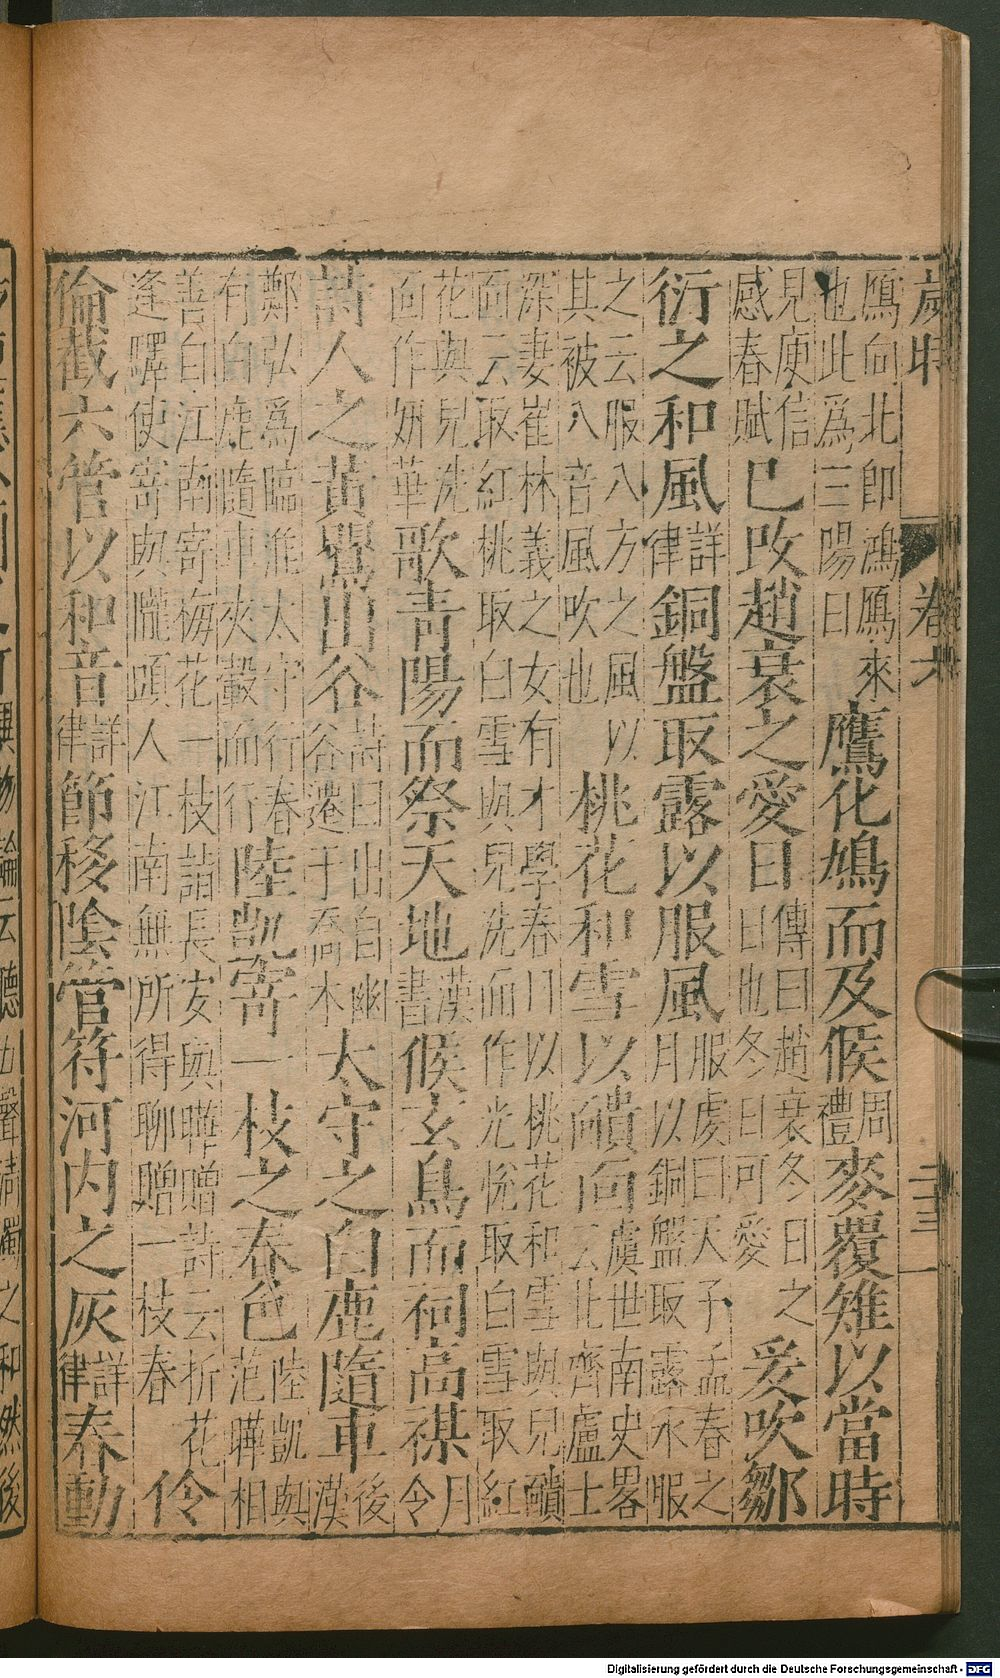 歲時 卷六 二十三
鴈向北即鴻鴈來
也此為三陽日
鷹花鳩而及候
周
禮
麥覆雉以當時
見庾信
感春賦
已攺趙衰之愛日
傳曰趙衰冬日之
日也冬日可愛
爰吹鄒
衍之和風
詳
律
銅盤取露以服風
服虔曰天子孟春之
月以銅盤取露水服
之云服八方之風以
其被八音風吹也
桃花和雪以靧面
虞世南史畧
云北齊盧士
深妻崔林義之女有才學春日以桃花和雪與兒靧
面云取紅桃取白雪與兒洗面作光悅取白雪取紅
花與兒洗
面作妍華
歌青陽而祭天地
漢
書
候玄鳥而祠高禖
月
令
詩人之黃鸎出谷
詩曰出自幽
谷遷于喬木
太守之白鹿隨車
後
漢
鄭弘為臨淮太守行春
有白鹿隨車夾轂而行
陸凱寄一枝之春色
陸凱與
范曄相
善自江南寄梅花一枝詣長安與曄贈詩云折花
逢驛使寄與隴頭人江南無所得聊贈一枝春
伶
倫截六管以和音
詳
律
節移陰管符河內之灰
詳
律
春動
Digitalisierung gefördert durch die Deutsche Forschungsgemeinschaft - DFG